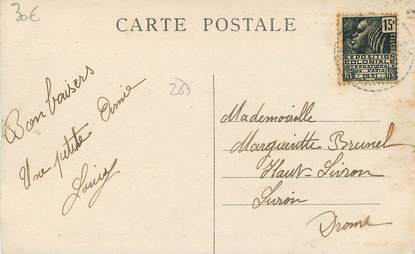 30€
CARTE POSTALE
15c
POSTES
EXPOSITION
COLONIALE
INTERNATIONALE
PARIS
1931
203
Bons baisers
Une petite Amie
Mademoiselle
Marguerite Brunel
Haut-Livron
Livron
Drome